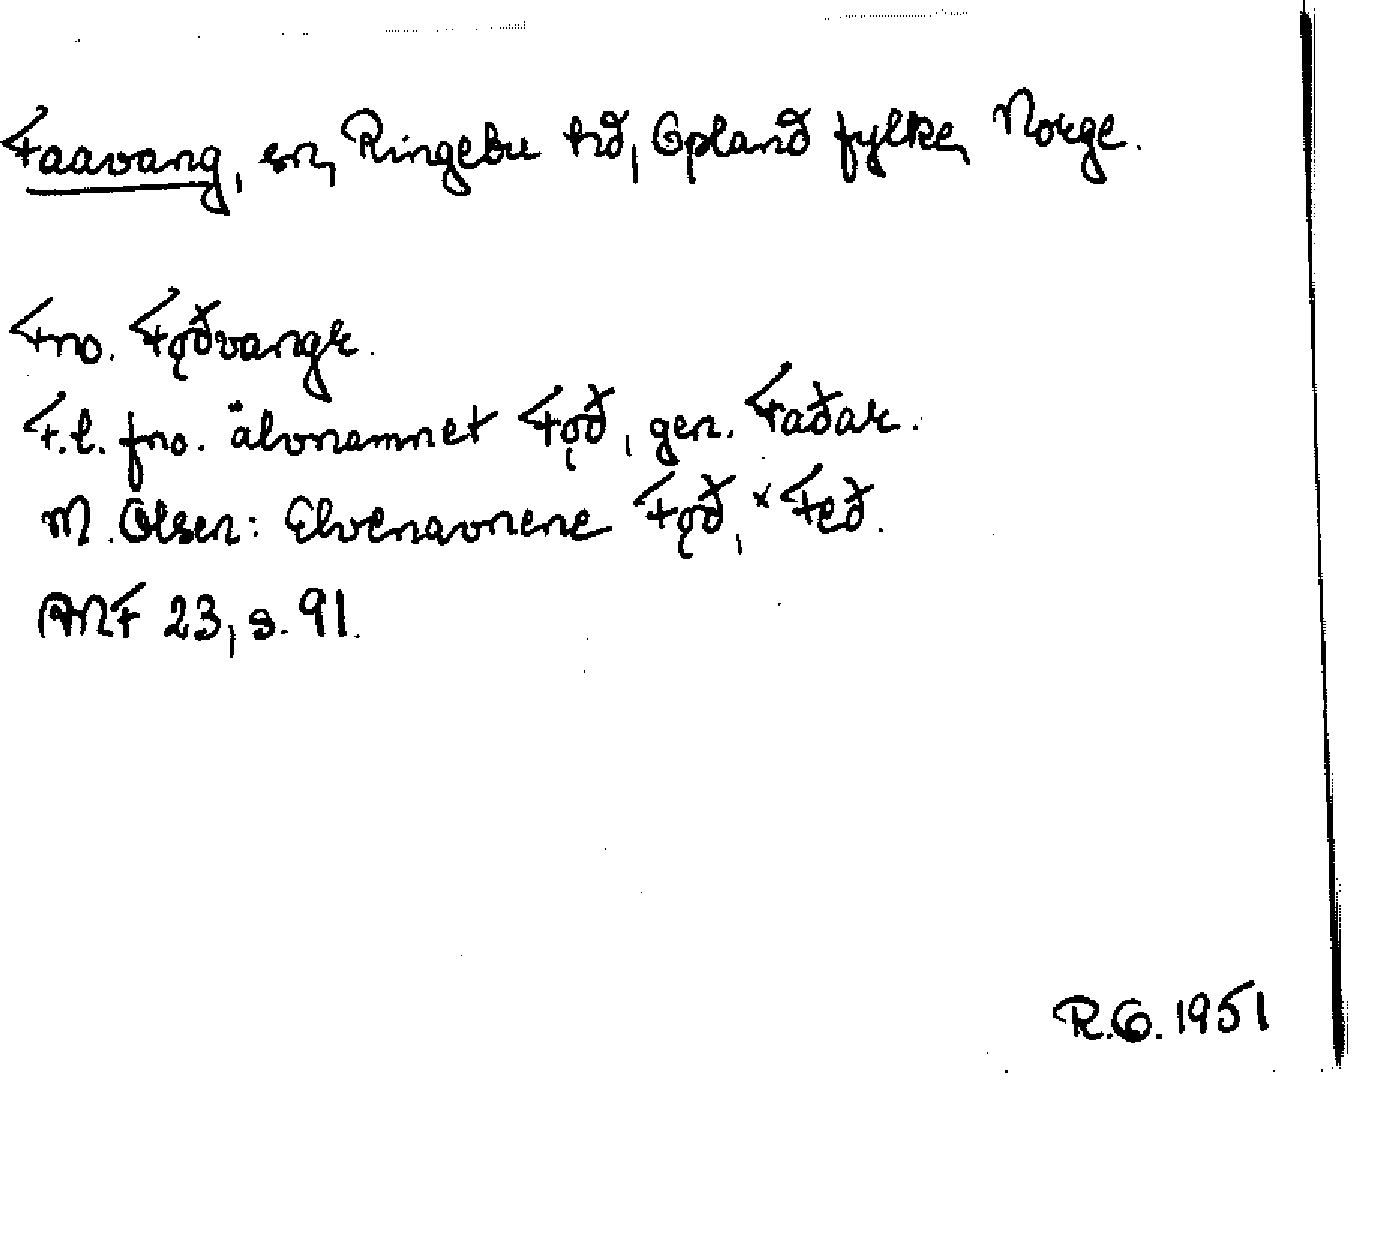 Faavang, sn, Ringebu tid, Opland fylke, Norge.
Fno. Fǫðvangr.
F.l. fno. älvnamnet Fǫð, gen. Faðar.
M. Olsen: Elvenavnene Fǫð, ˣFeð.
ANF 23, s. 91.
R.O. 1951